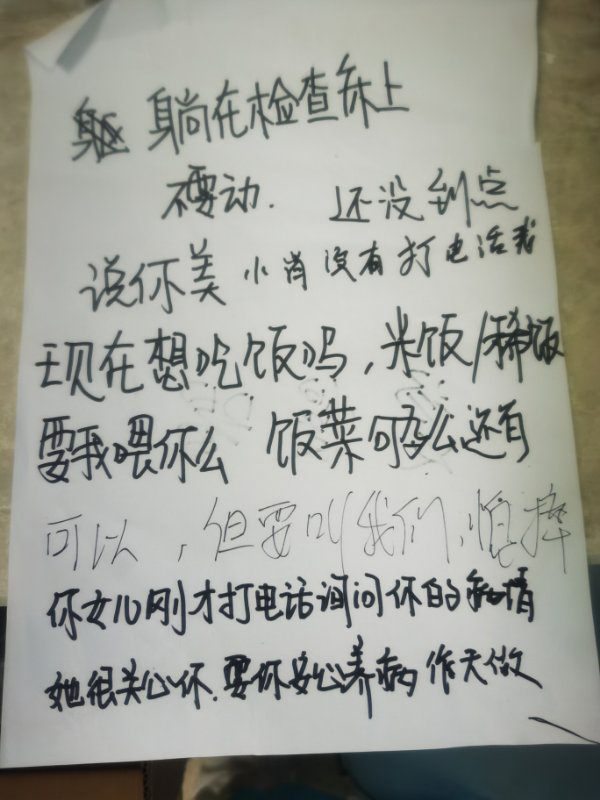 躺在检查床上
不要动. 还没到点
说你美 小肖没有打电话我
现在想吃饭吗,米饭/稀饭
要我喂你么 饭菜够么还有
可以,但要叫我们,怕摔
你女儿刚才打电话询问你的病情
她很关心你.要你安心养病 昨天做